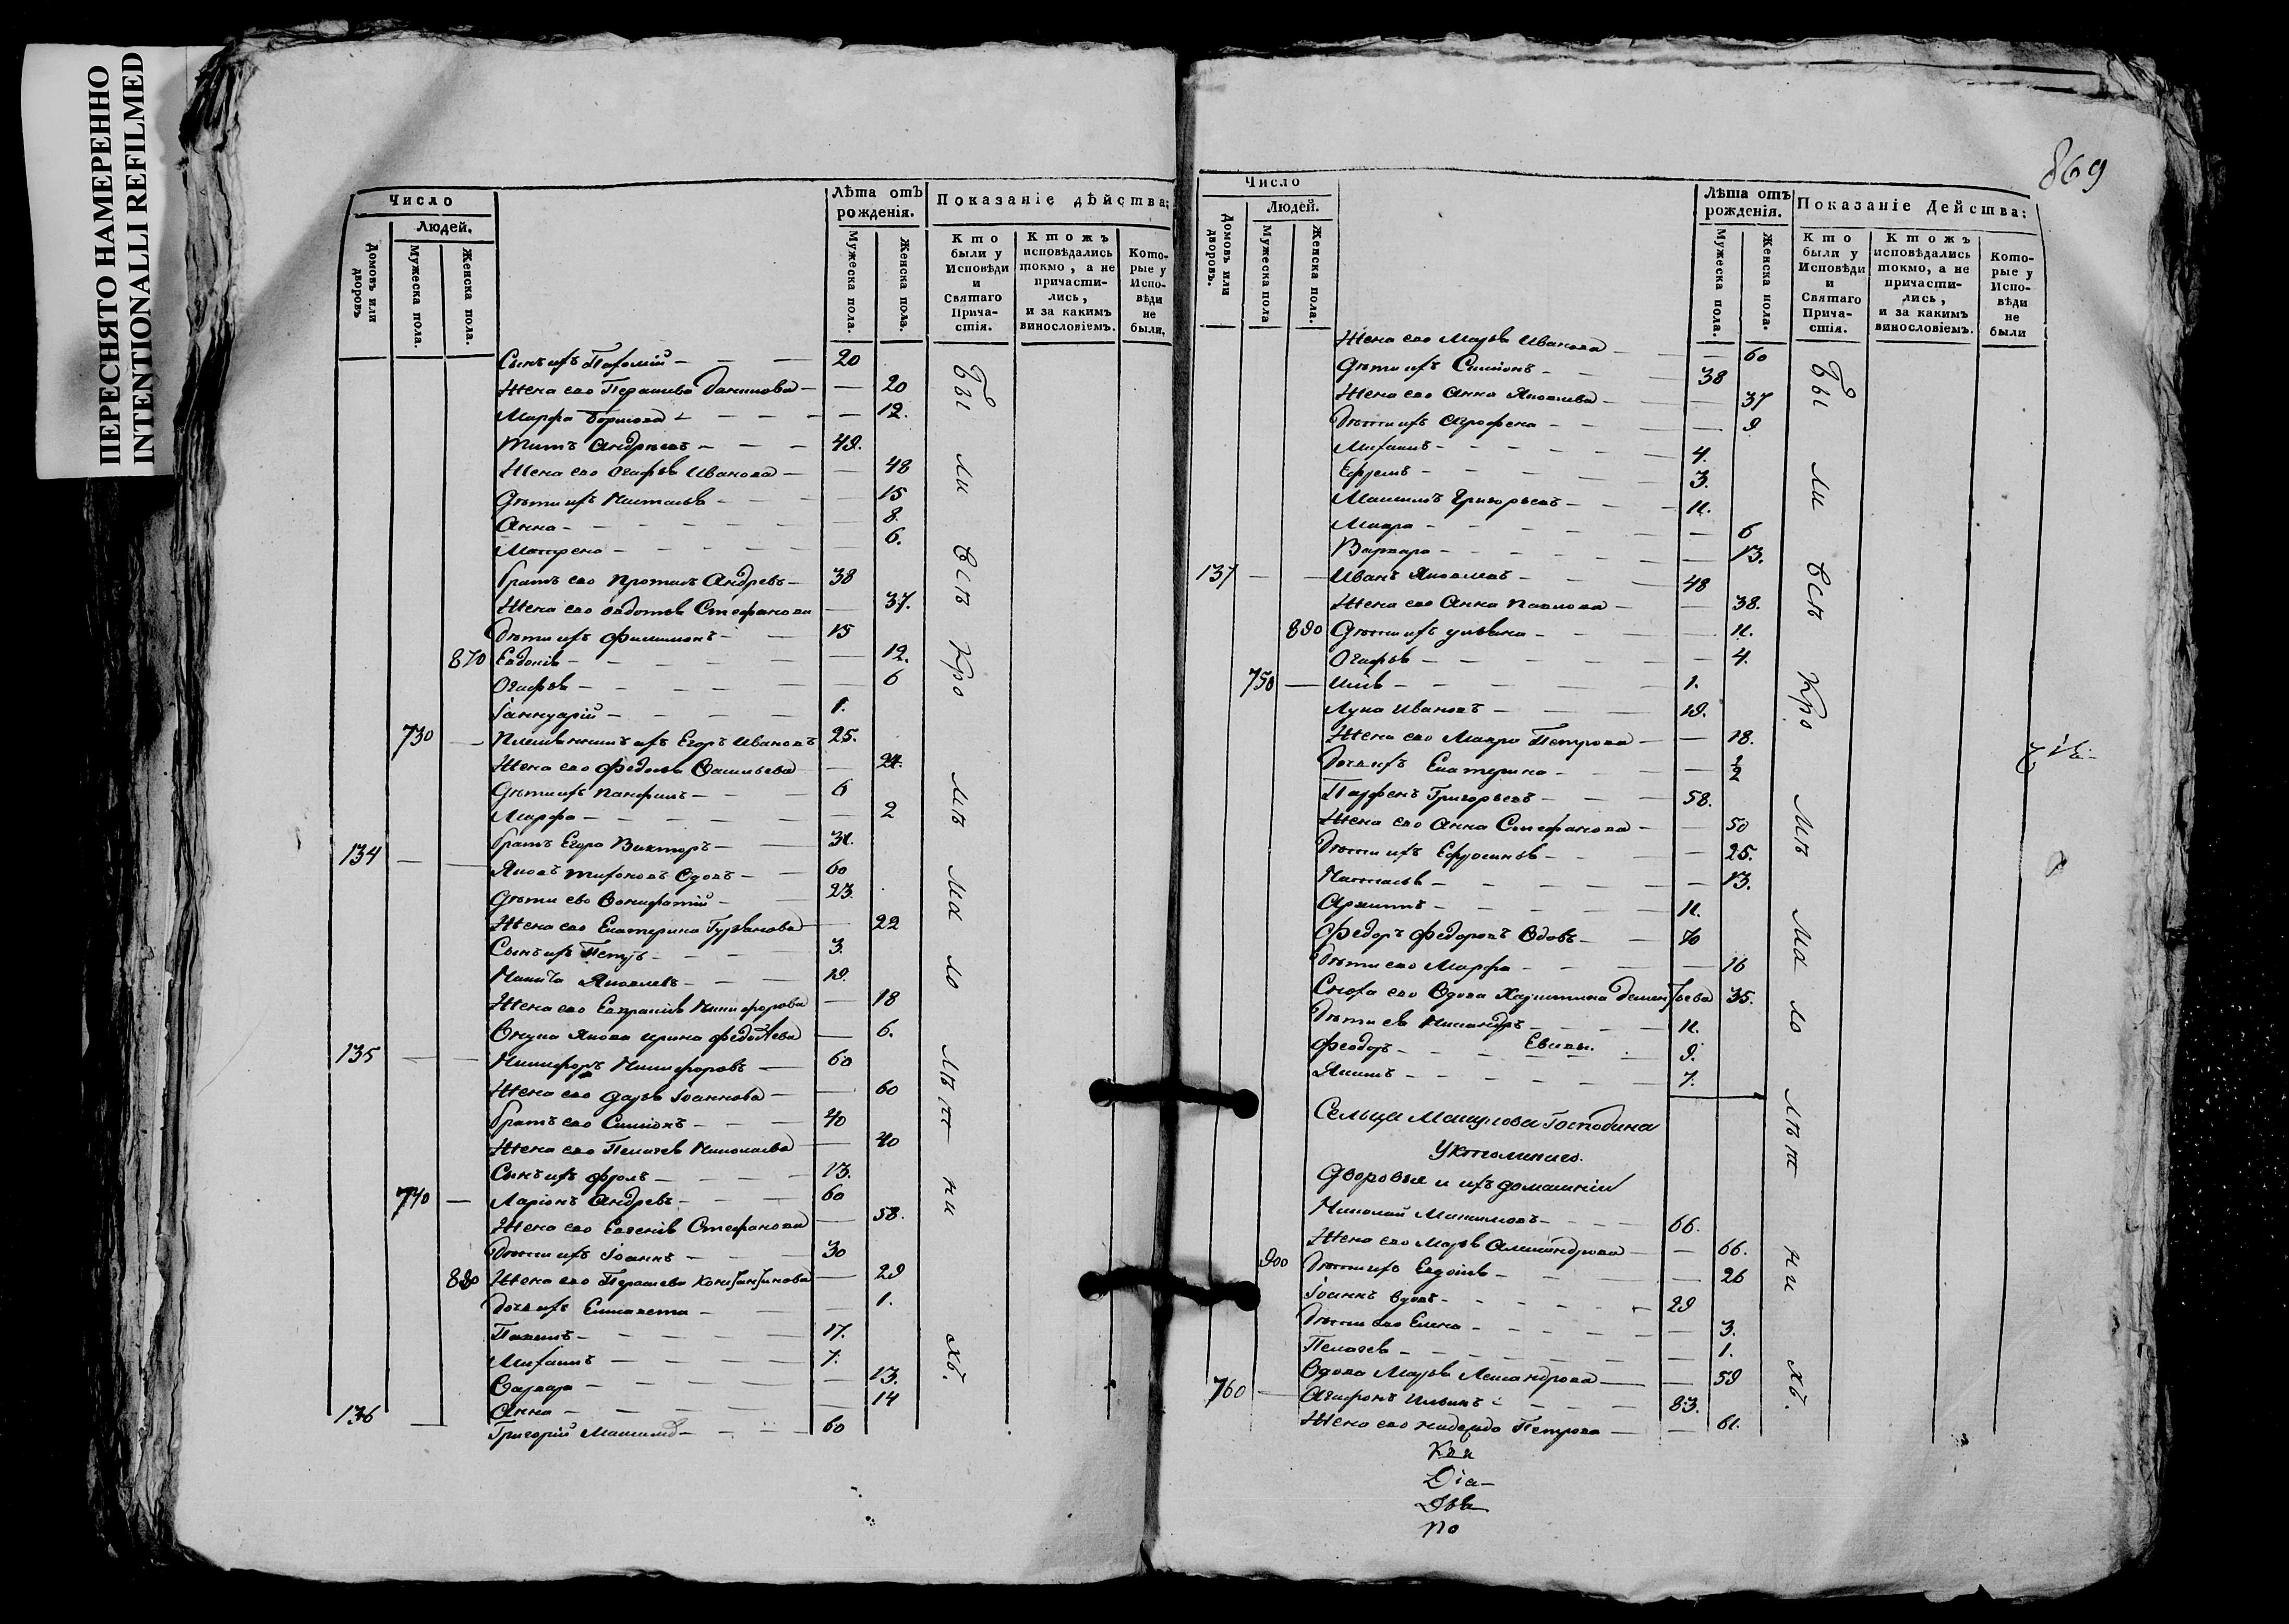 ПЕРЕСНЯТО НАМЕРЕННО
INTENTIONALLI REFILMED
Число
Людей.
Домовъ или дворовъ
Мужеска пола.
Женска пола.
Лѣта отъ рожденія.
Мужеска пола.
Женска пола.
Показаніе дѣйства:
Кто были у Исповѣди и Святаго Прича-стія.
Ктожъ исповѣдались токмо, а не причасти-лись, и за какимъ винословіемъ.
Кото-рые у Испо-вѣди не были.
Сынъ ихъ Пахомій 20
Жена его Парасшева Данилова 20
Марфа Борисова 12.
Титъ Андреевъ 49.
Жена его Огафья Иванова 48
Дѣти ихъ Наталья 15
Анна 8.
Матрена 6.
Братъ его Андревъ 38
Жена его Овдотья Стефанова 37.
Дѣти ихъ Филимонъ 15
870 Евдокія 12.
Огафья 6
Іаннуарій 1.
730 Племянникъ ихъ Егоръ Ивановъ 25.
Жена его Федосья Васильева 24.
Дѣти ихъ Панфилъ 6
Марфа 2
Братъ Егора Викторъ 31.
134 Яковъ Тихоновъ Вдовъ 60
Дѣти ево Вонифатій 23.
Жена его Екатерина 22
Сынъ ихъ Петръ 3.
Никита Яковлевъ 19.
Жена его Евпраксія Никифорова 18
Внука Якова Ирина 6.
135 Никифоръ Никифоровъ 60
Жена его Дарья Іоаннова 60
Братъ его Симіонъ 40
Жена его Пелагея Николаева 40
Сынъ ихъ Фролъ 13.
740 Ларіонъ Андревъ 60
Жена его Евгенія Стефанова 58.
Дѣти ихъ Іоаннъ 30
880 Жена его Парасшева Константинова 29
Дочь ихъ Елисавета 1.
Павелъ 17.
Михаилъ 7.
Варвара 13.
Анна 14
136 Григорій 60
Бы ли всѣ Кро мѣ ма ло лѣт ни хъ.
869
Число
Людей.
Домовъ или дворовъ.
Мужеска пола
Женска пола.
Лѣта отъ рожденія.
Мужеска пола.
Женска пола.
Показаніе Действа:
Кто были у Исповѣди и Святаго Прича-стія.
Ктожъ исповѣдались токмо, а не причасти-лись, и за какимъ винословіемъ.
Кото-рые у Испо-вѣди не были
Жена его Марья Иванова 60
Дѣти ихъ Симіонъ 38
Жена его Анна Яковлева 37
Дѣти ихъ Агрофена 9
Михаилъ 4.
Ефремъ 3.
Григорьевъ 11.
Мавра 6
Варвара 13.
137 Иванъ Яковлевъ 48
Жена его Анна Павлова 38.
890 Дѣти ихъ Ульяна 11.
Огафья 4.
750 Илія 1.
Лука Ивановъ 19.
Жена его Мавра Петрова 18.
Дочь ихъ Екатерина 1/2
Парфенъ Григорьевъ 58.
Жена его Анна Стефанова 50
Дѣти ихъ Ефросинья 25.
Наталья 13.
Архипъ 11.
Федоръ Федоровъ Вдовъ 70
Дѣти его Марфа 16
Сноха его Вдова Харитина Дементьева 35.
Дѣти ея Никандръ 11.
Феодоръ 9.
Якимъ 7.
Сельца Господина
Дворовыя и ихъ домашніи
Николай Максимовъ 66.
Жена его Марья Александрова 66.
900 Дѣти ихъ Евдокія 26
Іоаннъ Вдовъ 29
Дѣти его Елена 3.
Пелагея 1.
Вдова Марья Александрова 59
760 Агафонъ Ильинъ 83.
Жена его Надежда Петрова 61.
Бы ли всѣ Кро мѣ ма ло лѣт ни хъ.
Діа-
по